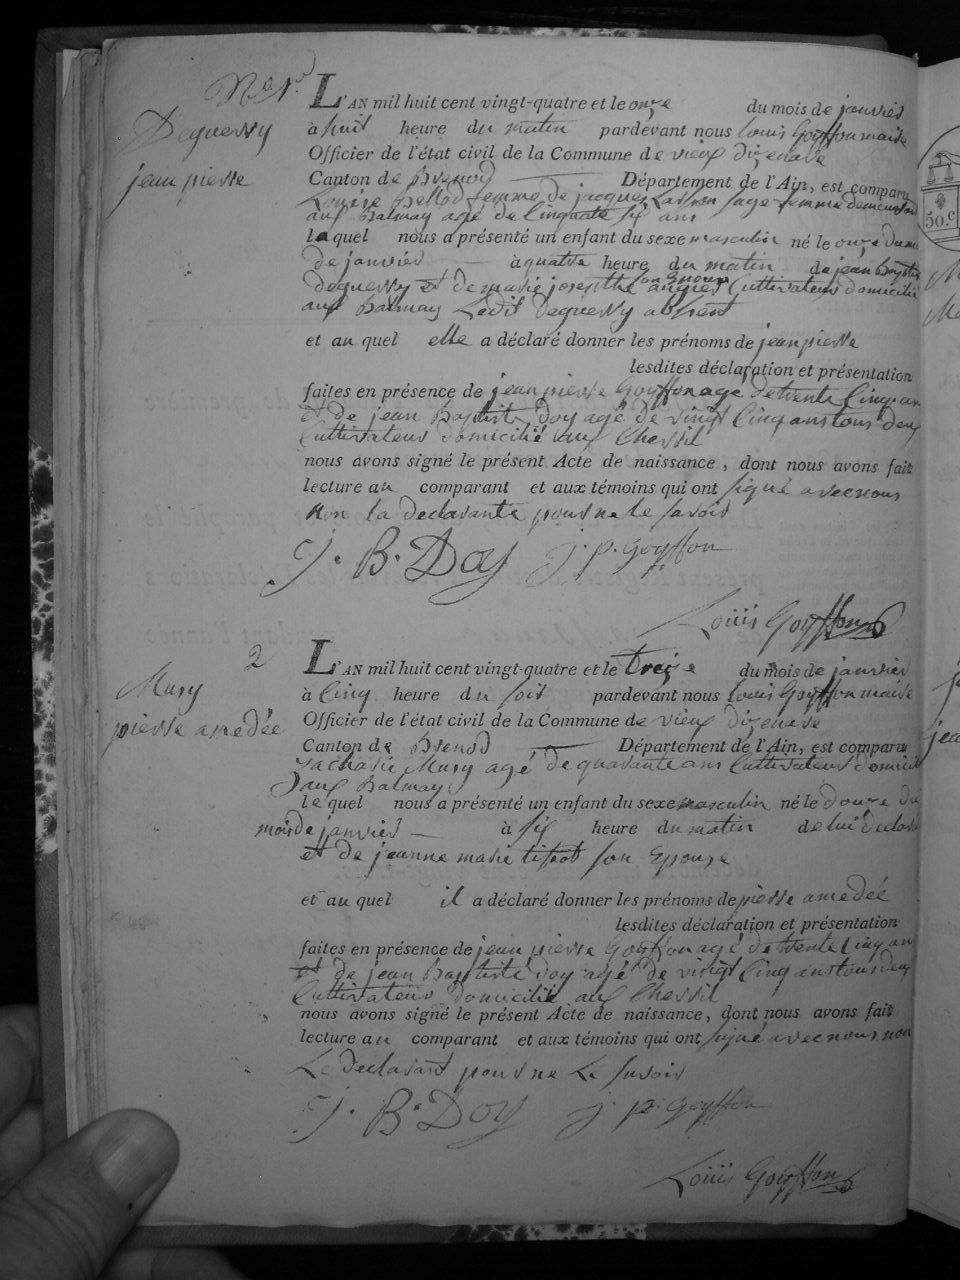 No 1er
Deguerry
jean pierre
L'AN mil huit cent vingt-quatre et le onze du mois de janvier
à huit heure du matin pardevant nous Louis Goyffon maire
Officier de l'état civil de la Commune de vieux dizenave
Canton de Brenod Département de l'Ain, est comparu
Louise Bellod femme de jacques sage femme demeurant
aux Balmay agé de Cinquate six ans
laquel nous a présenté un enfant du sexe masculin né le onze du mois
de janvier à quatre heure du matin de jean Baptiste
deguerry et de marie josephte son Epouse Cultivateur domicilié
aux Balmay Ledit deguerry absent
et au quel elle a déclaré donner les prénoms de jean pierre
lesdites déclaration et présentation
faites en présence de jean pierre Goyffon agé de trente Cinq an
et de jean Baptiste Doy agé de vingt Cinq ans tous deux
Cultivateur domicilié aux Chessil
nous avons signé le présent Acte de naissance, dont nous avons fait
lecture au comparant et aux témoins qui ont signé avec nous
non la declarante pour ne le savoir
J. B. Doy j. p. goyffon
Louis Goyffon
2
Mury
pierre amedée
L'AN mil huit cent vingt-quatre et le treize du mois de janvier
à Cinq heure du soir pardevant nous Louis Goyffon maire
Officier de l'état civil de la Commune de vieux dizenave
Canton de Brenod Département de l'Ain, est comparu
Zacharie Mury agé de quarante ans Cultivateur domicilié
aux Balmay
lequel nous a présenté un enfant du sexe masculin né le douze du
mois de janvier à six heure du matin de lui declarant
et de jeanne marie son Epouse
et au quel il a déclaré donner les prénoms de pierre amedée
lesdites déclaration et présentation
faites en présence de jean pierre Goyffon agé de trente Cinq ans
et de jean Baptiste Doy agé de vingt Cinq ans tous deux
Cultivateur domicilié aux Chessil
nous avons signé le présent Acte de naissance, dont nous avons fait
lecture au comparant et aux témoins qui ont signé avec nous non
Le declarant pour ne Le savoir
J. B. Doy j. p. goyffon
Louis Goyffon
50.c